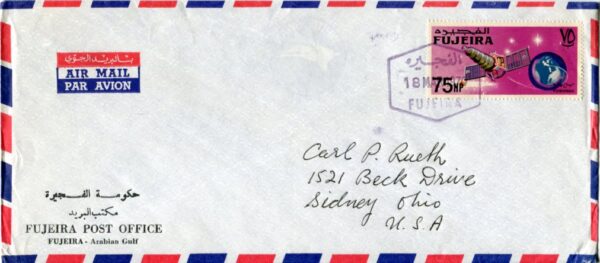 بالبريد الجوي
AIR MAIL
PAR AVION
الفجيرة
FUJEIRA
٧٥
75 NP
الفجيره
FUJEIRA
Carl P. Rueth
1521 Beck Drive
Sidney Ohio
U.S.A
حكومة الفجيرة
مكتب البريد
FUJEIRA POST OFFICE
FUJEIRA - Arabian Gulf